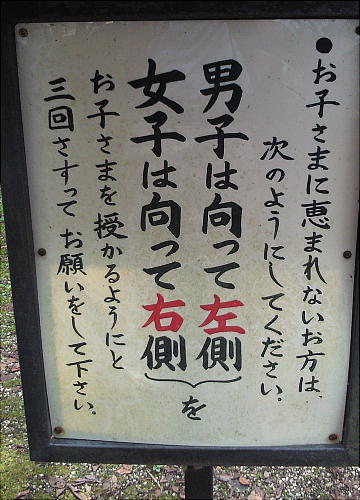 ●お子さまに恵まれないお方は、
次のようにしてください。
男子は向って左側
女子は向って右側
を
お子さまを授かるようにと
三回さすってお願いをして下さい。